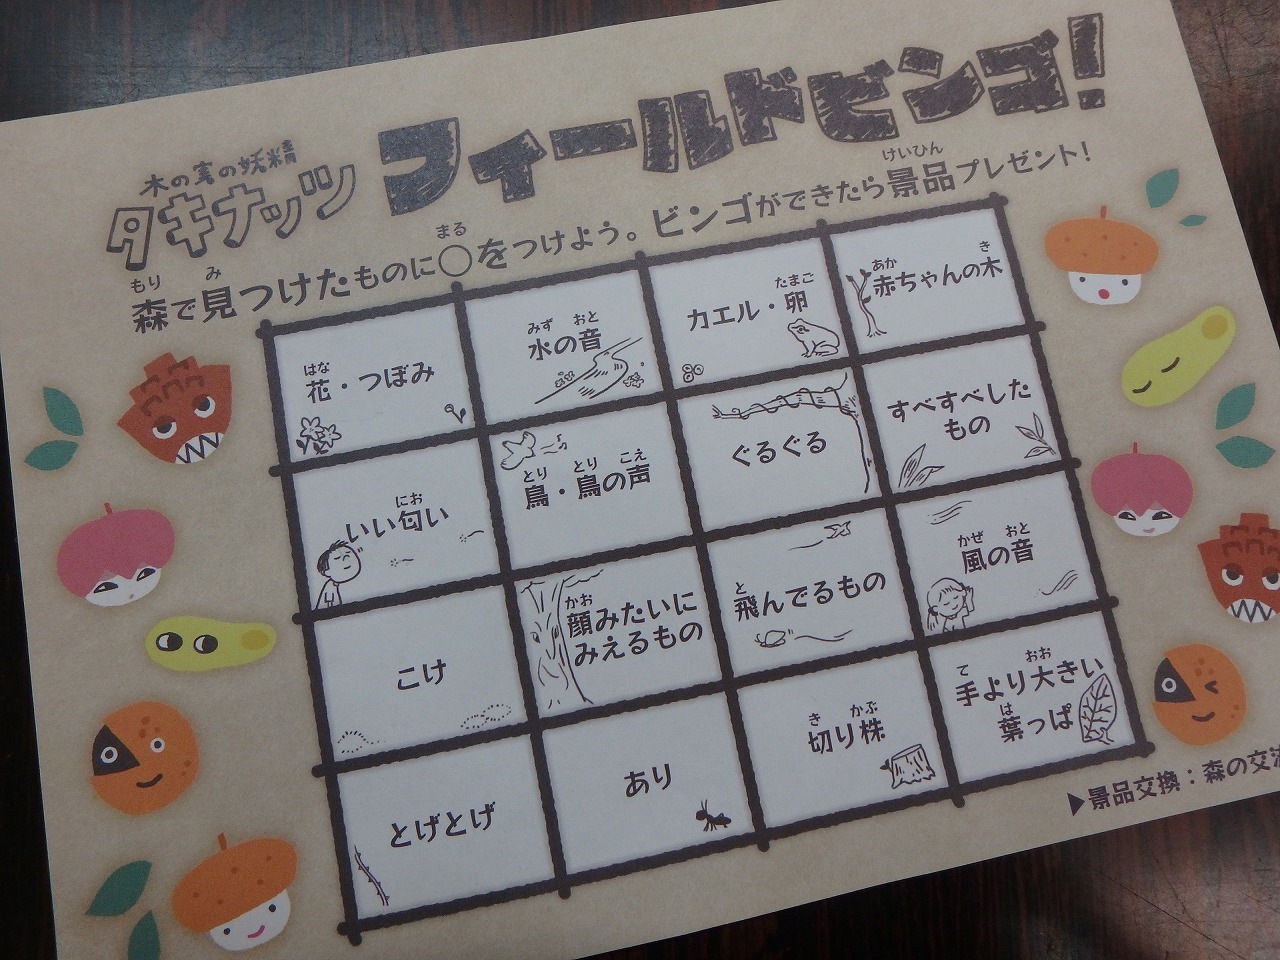 木の実の妖精
タキナッツ フィールドビンゴ!
森で見つけたものに○をつけよう。ビンゴができたら景品プレゼント!
もり み まる けいひん
花・つぼみ
はな
水の音
みず おと
カエル・卵
たまご
赤ちゃんの木
あか き
いい匂い
にお
鳥・鳥の声
とり とり こえ
ぐるぐる
すべすべした
もの
こけ
顔みたいに
かお
みえるもの
飛んでるもの
と
風の音
かぜ おと
とげとげ
あり
切り株
き かぶ
手より大きい
て おお
葉っぱ
は
▶景品交換:森の交流